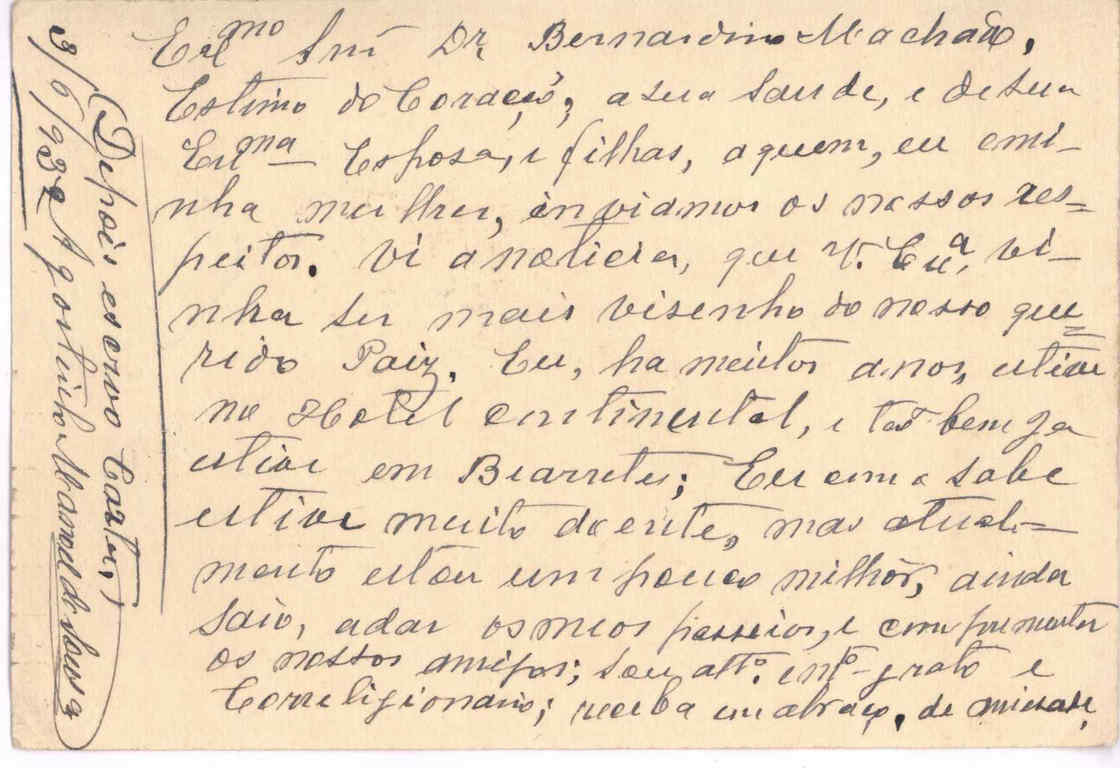 Exmo Snr Dr Bernardino Machado,
Estimo do Coração, a sua saude, e de sua
Exma Esposa, e filhas, a quem, eu e mi-
nha mulher, inviamos os nossos res-
peitos. Vi a noticia, que V. Exa, vi-
nha ser mais visenho do nosso que-
rido Paiz. Eu, ha muitos anos, estive
no Hotel continental, e tão bem ja
estive em Biarretes; Eu como sabe
estive muito doente, mas atual-
mento estou um pouco milhór, ainda
saio, a dar os meos passeios, e comprimentar
os nossos amigos; Sou atto. e mto grato e
Correligionario; receba um abraço, de
(Depois escrevo Carta,)
3/6/932 Agostinho Manoel de Sousa